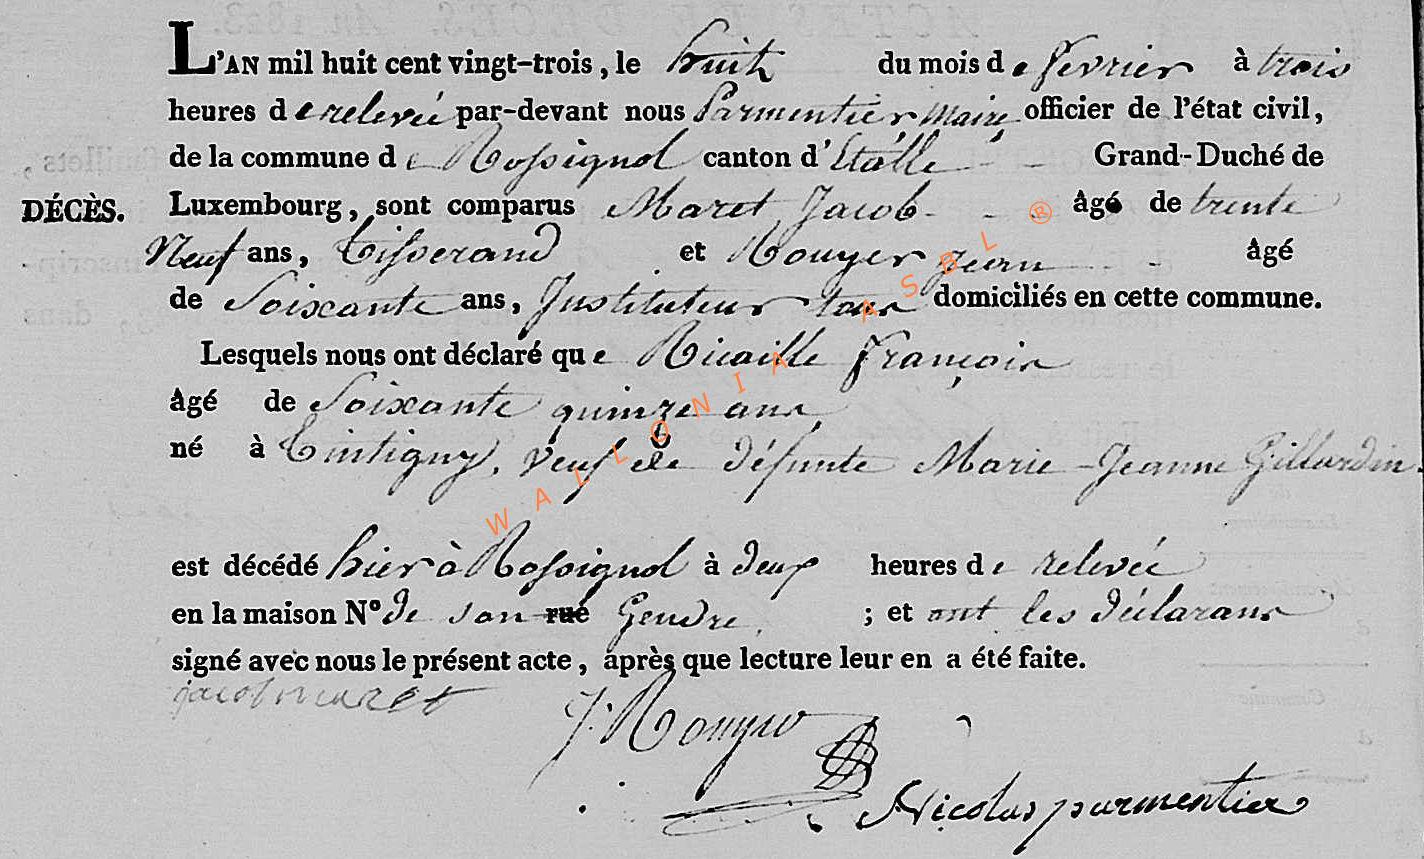 L'AN mil huit cent vingt-trois, le huit du mois de fevrier à trois
heures de relevée par-devant nous Parmentier Maire officier de l'état civil,
de la commune de Rossignol canton d'Etalle Grand-Duché de
DÉCÈS. Luxembourg, sont comparus Maret Jacob âgé de trente
Neuf ans, Tisserand et Rouyer Jean âgé
de Soixante ans, Instituteur tous domiciliés en cette commune.
Lesquels nous ont déclaré que Ricaille François
âgé de Soixante quinze ans
né à Tintigny, Veuf de défunte Marie-Jeanne Gillardin.
est décédé hier à Rossignol à deux heures de relevée
en la maison N° de son rue Gendre ; et ont les déclarans
signé avec nous le présent acte, après que lecture leur en a été faite.
jacob maret
J. Rouyer
Nicolas parmentier
WALLONIA ASBL ®